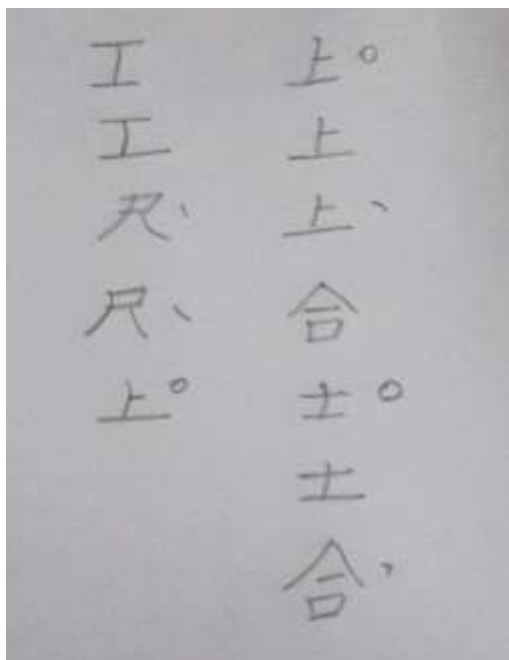 上。
上
上、
合
士。
士
合、
工
工
尺、
尺、
上。